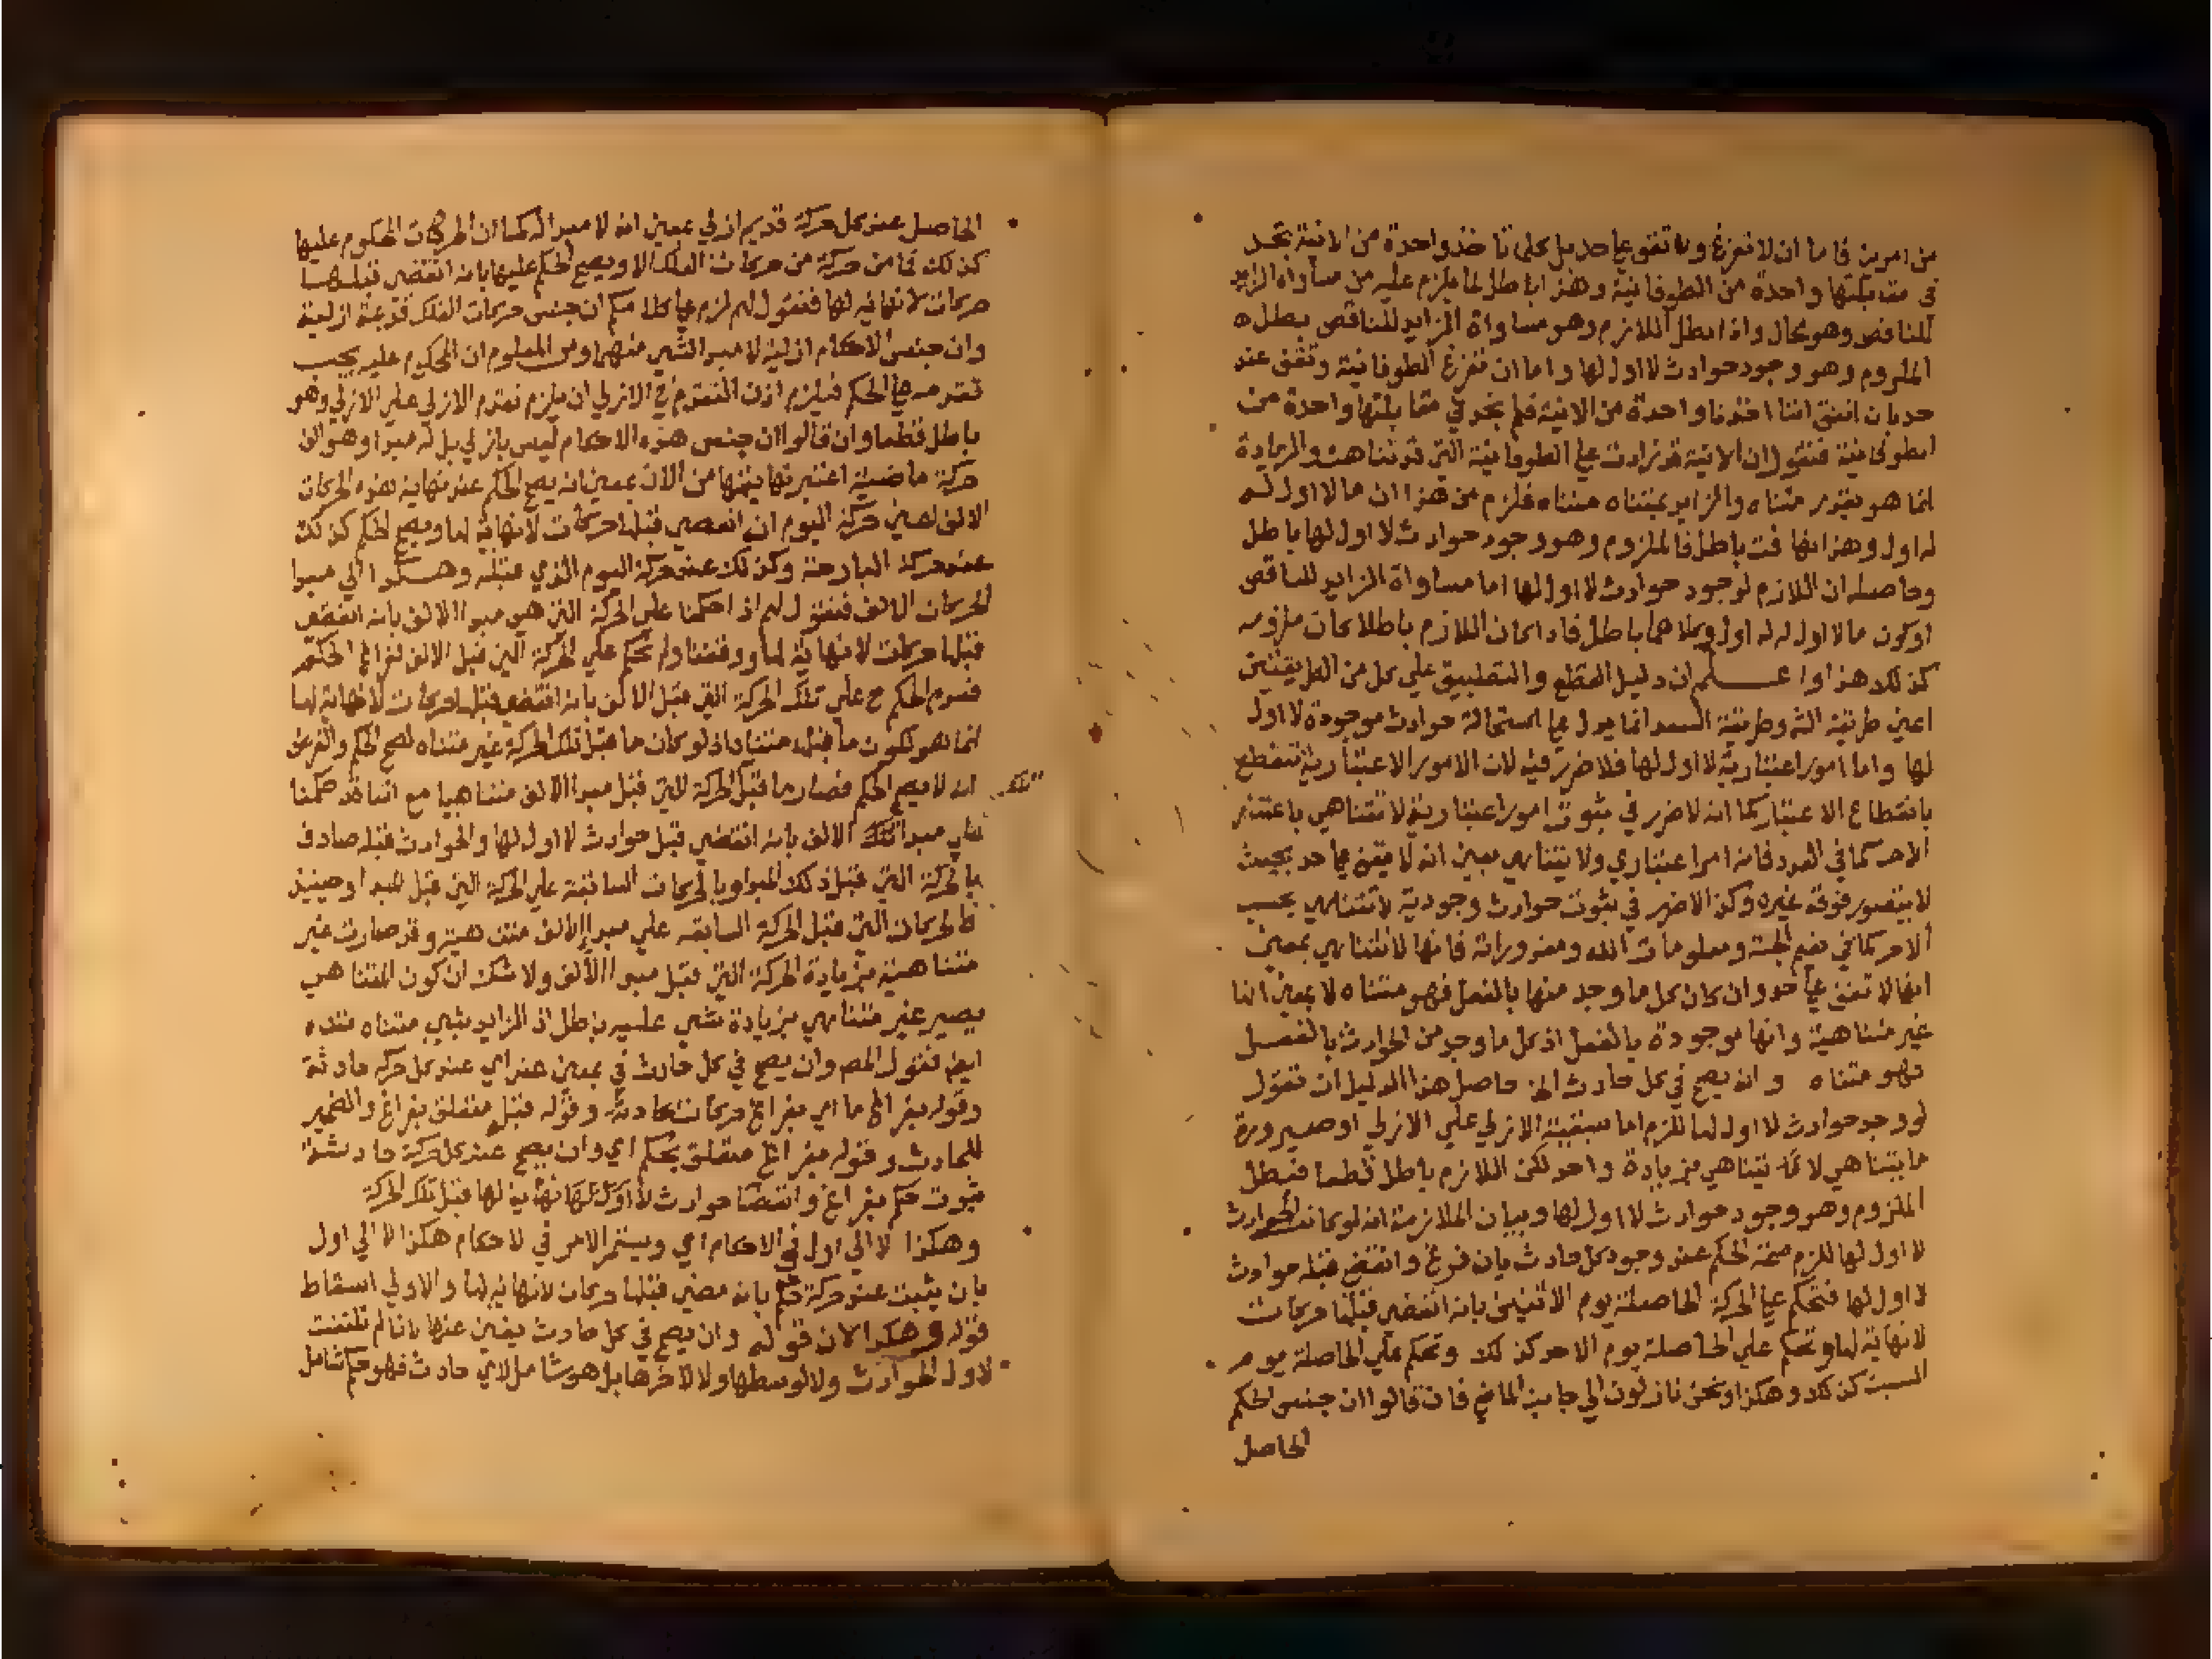 من امرين فاما ان لا تفرغ ولا تقف على حد بل كلما تاخذ واحدة من الانية تجد
في مقابلتها واحدة من الطوفانية وهذا باطل لما يلزم عليه من مساواة الزايد
للناقص وهو محال واذا بطل اللازم وهو مساواة الزايد للناقص بطل
الملزوم وهو وجود حوادث لا اول لها واما ان تفرغ الطوفانية وتقف عند
حد بان اتفق اننا اخذنا واحدة من الانية فلم نجد في مقابلتها واحدة من
الطوفانية فنقول ان الانية قد زادت على الطوفانية التي قد تناهت والزيادة
انما هو بقدر متناه والزايد بمتناه متناه فلزم من هذا ان ما لا اول له
له اول وهذا تهافت باطل فالملزوم وهو وجود حوادث لا اول لها باطل
وحاصله ان اللازم لوجود حوادث لا اول لها اما مساواة الزايد للناقص
او كون ما لا اول له له اول وكلاهما باطل فاذا كان اللازم باطلا كان ملزومه
كذلك هذا واعلم ان دليل القطع والتطبيق علي كل من الطريقتين
اعني طريقة الشـ وطريقة السعد انما يدل على استحالة حوادث موجودة لا اول
لها واما امور اعتبارية لا اول لها فلا ضرر فيه لان الامور الاعتبارية تنقطع
بانقطاع الاعتبار كما انه لا ضرر في ثبوت امور اعتبارية لا تتناهي باعتبار
الاخر كما في العدد فانه امر اعتباري ولا يتناهي بمعني انه لا يقف على حد بحيث
لا يتصور فوقه غيره وكذا لا ضرر في ثبوت حوادث وجودية لا تتناهي بحسب
الاخر كما في نعيم الجنة ومعلومات الله ومقدوراته فانها لا تتناهي بمعني
انها لا تقف على حد وان كان كل ما وجد منها بالفعل فهو متناه لا بمعني انها
غير متناهية وانها موجودة بالفعل اذ كل ما وجد من الحوادث بالفعل
فهو متناه وان يصح في كل حادث الخ حاصل هذا الدليل ان تقول
لو وجد حوادث لا اول لها للزم اما سبقية الازلي علي الازلي او صيرورة
ما يتناهي لا يتناهي بزيادة واحد لكن اللازم باطل قطعا فبطل
الملزوم وهو وجود حوادث لا اول لها وبيان الملازمة انه لو كانت الحوادث
لا اول لها للزم صحة الحكم عند وجود كل حادث بان فرغ وانقضى قبله حوادث
لا اول لها فتحكم على الحركة الحاصلة يوم الاثنين بانه انقضى قبلها حركات
لا نهاية لها وتحكم علي الحاصلة يوم الاحد كذلك وتحكم علي الحاصلة يوم
السبت كذلك وهكذا ونحن نازلون الي جانب الماضي فان قالوا ان جنس الحكم
الحاصل
الحاصل عند كل حركة قديم ازلي بمعني انه لا مبدا له كما ان الحركات المحكوم عليها
كذلك فما من حركة من حركات الفلك الا ويصح الحكم عليها بانه انقضى قبلها
حركات لا نهاية لها فنقول لهم لزم على كلامكم ان جنس حركات الفلك قديمة ازلية
وان جنس الاحكام ازلية لا مبدا لشي منهما ومن المعلوم ان المحكوم عليه يجب
تقدمه على الحكم فيلزم اذن التقدم في الازلي ان يلزم تقدم الازلي علي الازلي وهو
باطل قطعا وان قالوا ان جنس هذه الاحكام ليس بازلي بل له مبدا وهو الف
حركة ماضية اعتبر نهايتها من الان بمعني انه يصح الحكم عند نهاية هذه الحركات
الالف حركة اليوم ان انقضى قبلها حركات لا نهاية لها ويصح الحكم كذلك
عند حركة البارحة وكذلك عند حركة اليوم الذي قبله وهكذا الي مبدا
الحركات الالف فنقول لهم اذا حكمنا علي الحركة التي هي مبدا الالف بانه انقضى
قبلها حركات لا نهاية لها ووقفنا ولم نحكم علي الحركة التي قبل الالف لفراغ الحكم
فعدم الحكم ح علي تلك الحركة التي قبل الالف بانه انقضى قبلها حركات لا نهاية لها
انما هو لكون ما قبلها متناه اذ لو كان ما قبل تلك الحركة غير متناه لصح الحكم والفرض
انه لا يصح الحكم فصار ما قبل الحركة التي قبل مبدا الالف متناهيا مع اننا قد حكمنا
علي مبدا تلك الالف بانه انقضى قبل حوادث لا اول لها والحوادث قبله صادق
بالحركة التي قبل ذلك المبدا وبالحركات السابقة علي الحركة التي قبل المبدا وحينئذ
فالحركات التي قبل الحركة السابقة علي مبدا الالف متناهية وقد صارت غير
متناهية بزيادة الحركة التي قبل مبدا الالف ولا شك ان كون المتناهي
يصير غير متناهي بزيادة شي عليه باطل اذ الزايد بشي متناه متناه
ايضا فنقول المص وان يصح في كل حادث في بمعني عند اي عند كل حركة حادثة
وقوله بفراغ ما اي بفراغ حركات حادثة وقوله قبله متعلق بفراغ والضمير
للحادث وقوله بفراغ متعلق بحكم اي وان يصح عند كل حركة حادثة
ثبوت حكم بفراغ وانقضا حوادث لا اول لها نهاية لها قبل تلك الحركة
وهكذا لا الي اول في الاحكام اي ويستمر الامر في لاحكام هكذا لا الي اول
بان يثبت عند حركة حكم بانه مضي قبلها حركات لا نهاية لها والاولي اسقاط
قوله وهكذا لان قولهم وان يصح في كل حادث يغني عنها باننا لم نلتفت
لاول الحوادث ولا لوسطها ولا لاخرها بل هو شامل لاي حادث فهو حكم شامل